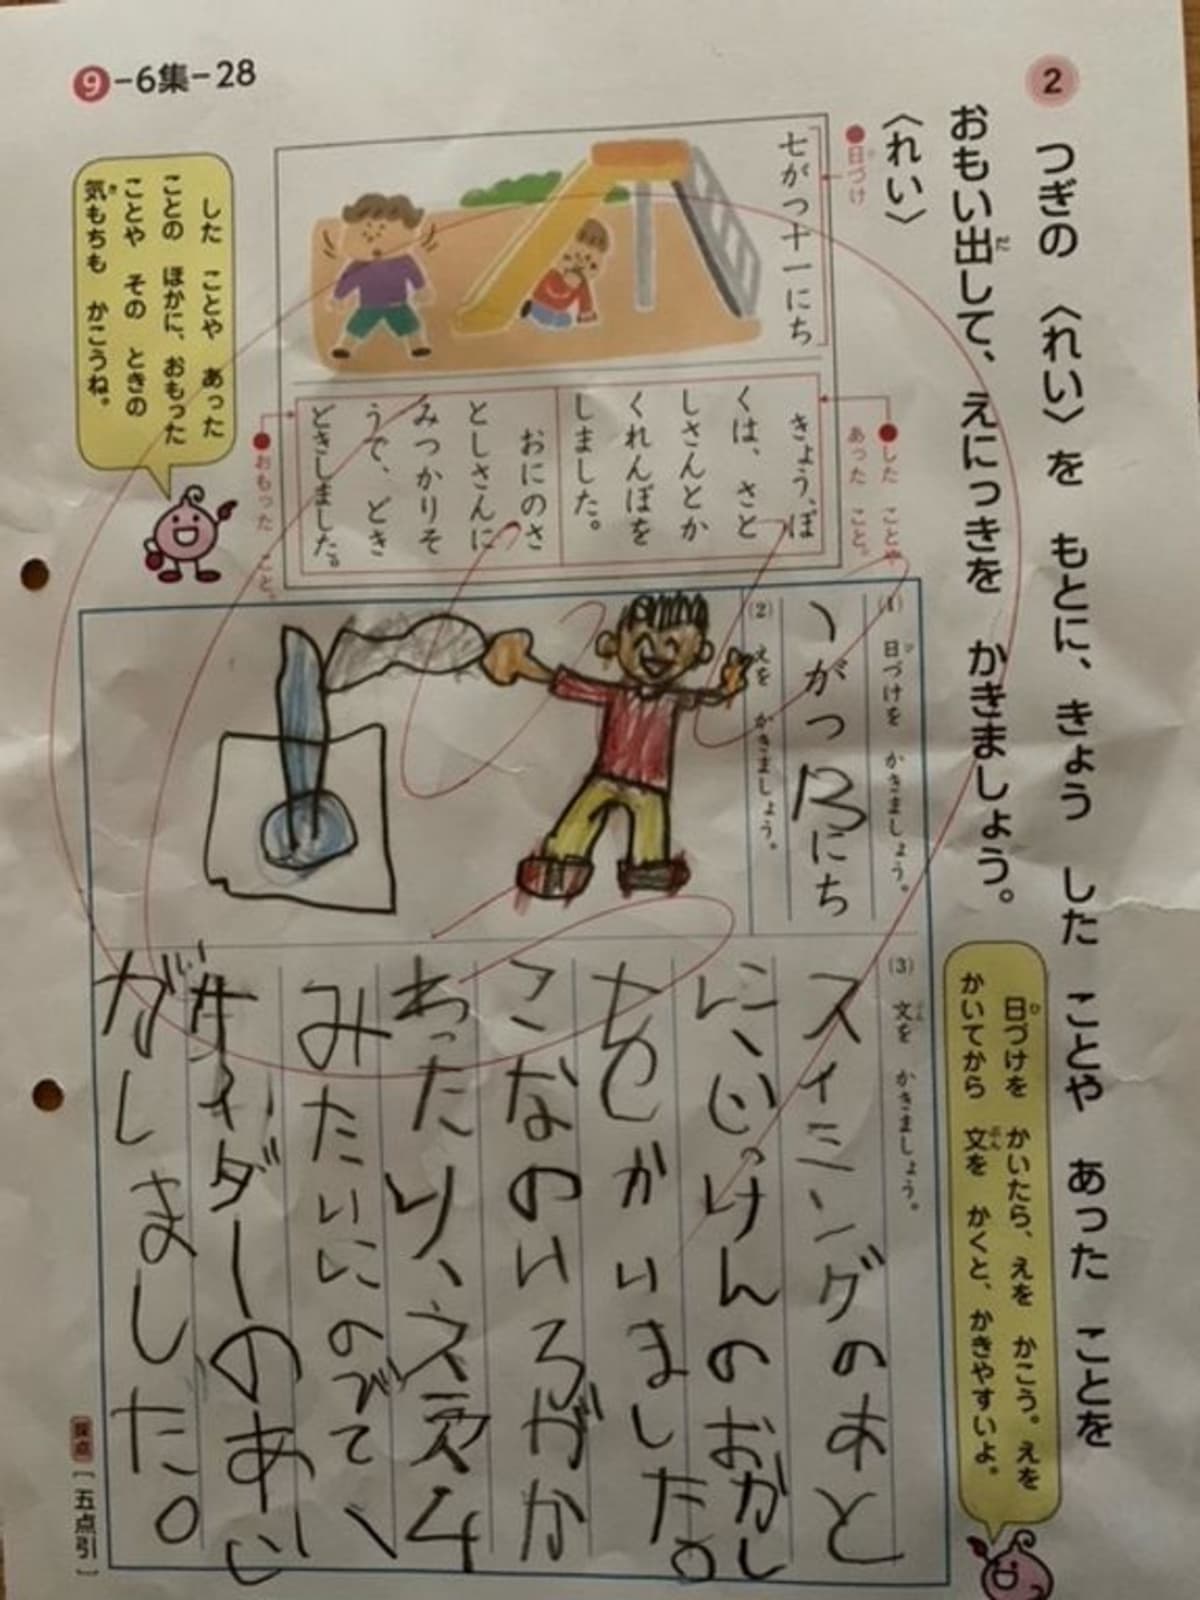 2 つぎの 〈れい〉を もとに、きょう した ことや あった ことを
おもい出して、えにっきを かきましょう。
〈れい〉
●日づけ
七がつ十一にち
●した ことや
あった こと。
きょう、ぼ
くは、さと
しさんとか
くれんぼを
しました。
おにのさ
としさんに
みつかりそ
うで、どき
どきしました。
●おもった こと。
した ことや あった
ことの ほかに、おもった
ことや その ときの
気もちも かこうね。
9-6集-28
日づけを かいたら、えを かこう。えを
かいてから 文を かくと、かきやすいよ。
(1) 日づけを かきましょう。
がつ にち
(2) えを かきましょう。
(3) 文を かきましょう。
スイミングのあと
に、じっけんのおかし
をかいました。
こなのいろがか
わったり、
みたいにのびて、
サイダーのあじ
がしました。
採点 [五点引]